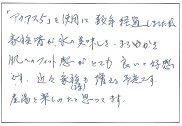 「アクアス5」を使用して数年経過しましたが
家族皆が、水の美味しさ、まろやかさ
肌へのフィット感がとても良いと好感
です。近々家族も増える予定です。
(孫)
産湯を楽しみたと思ってます。